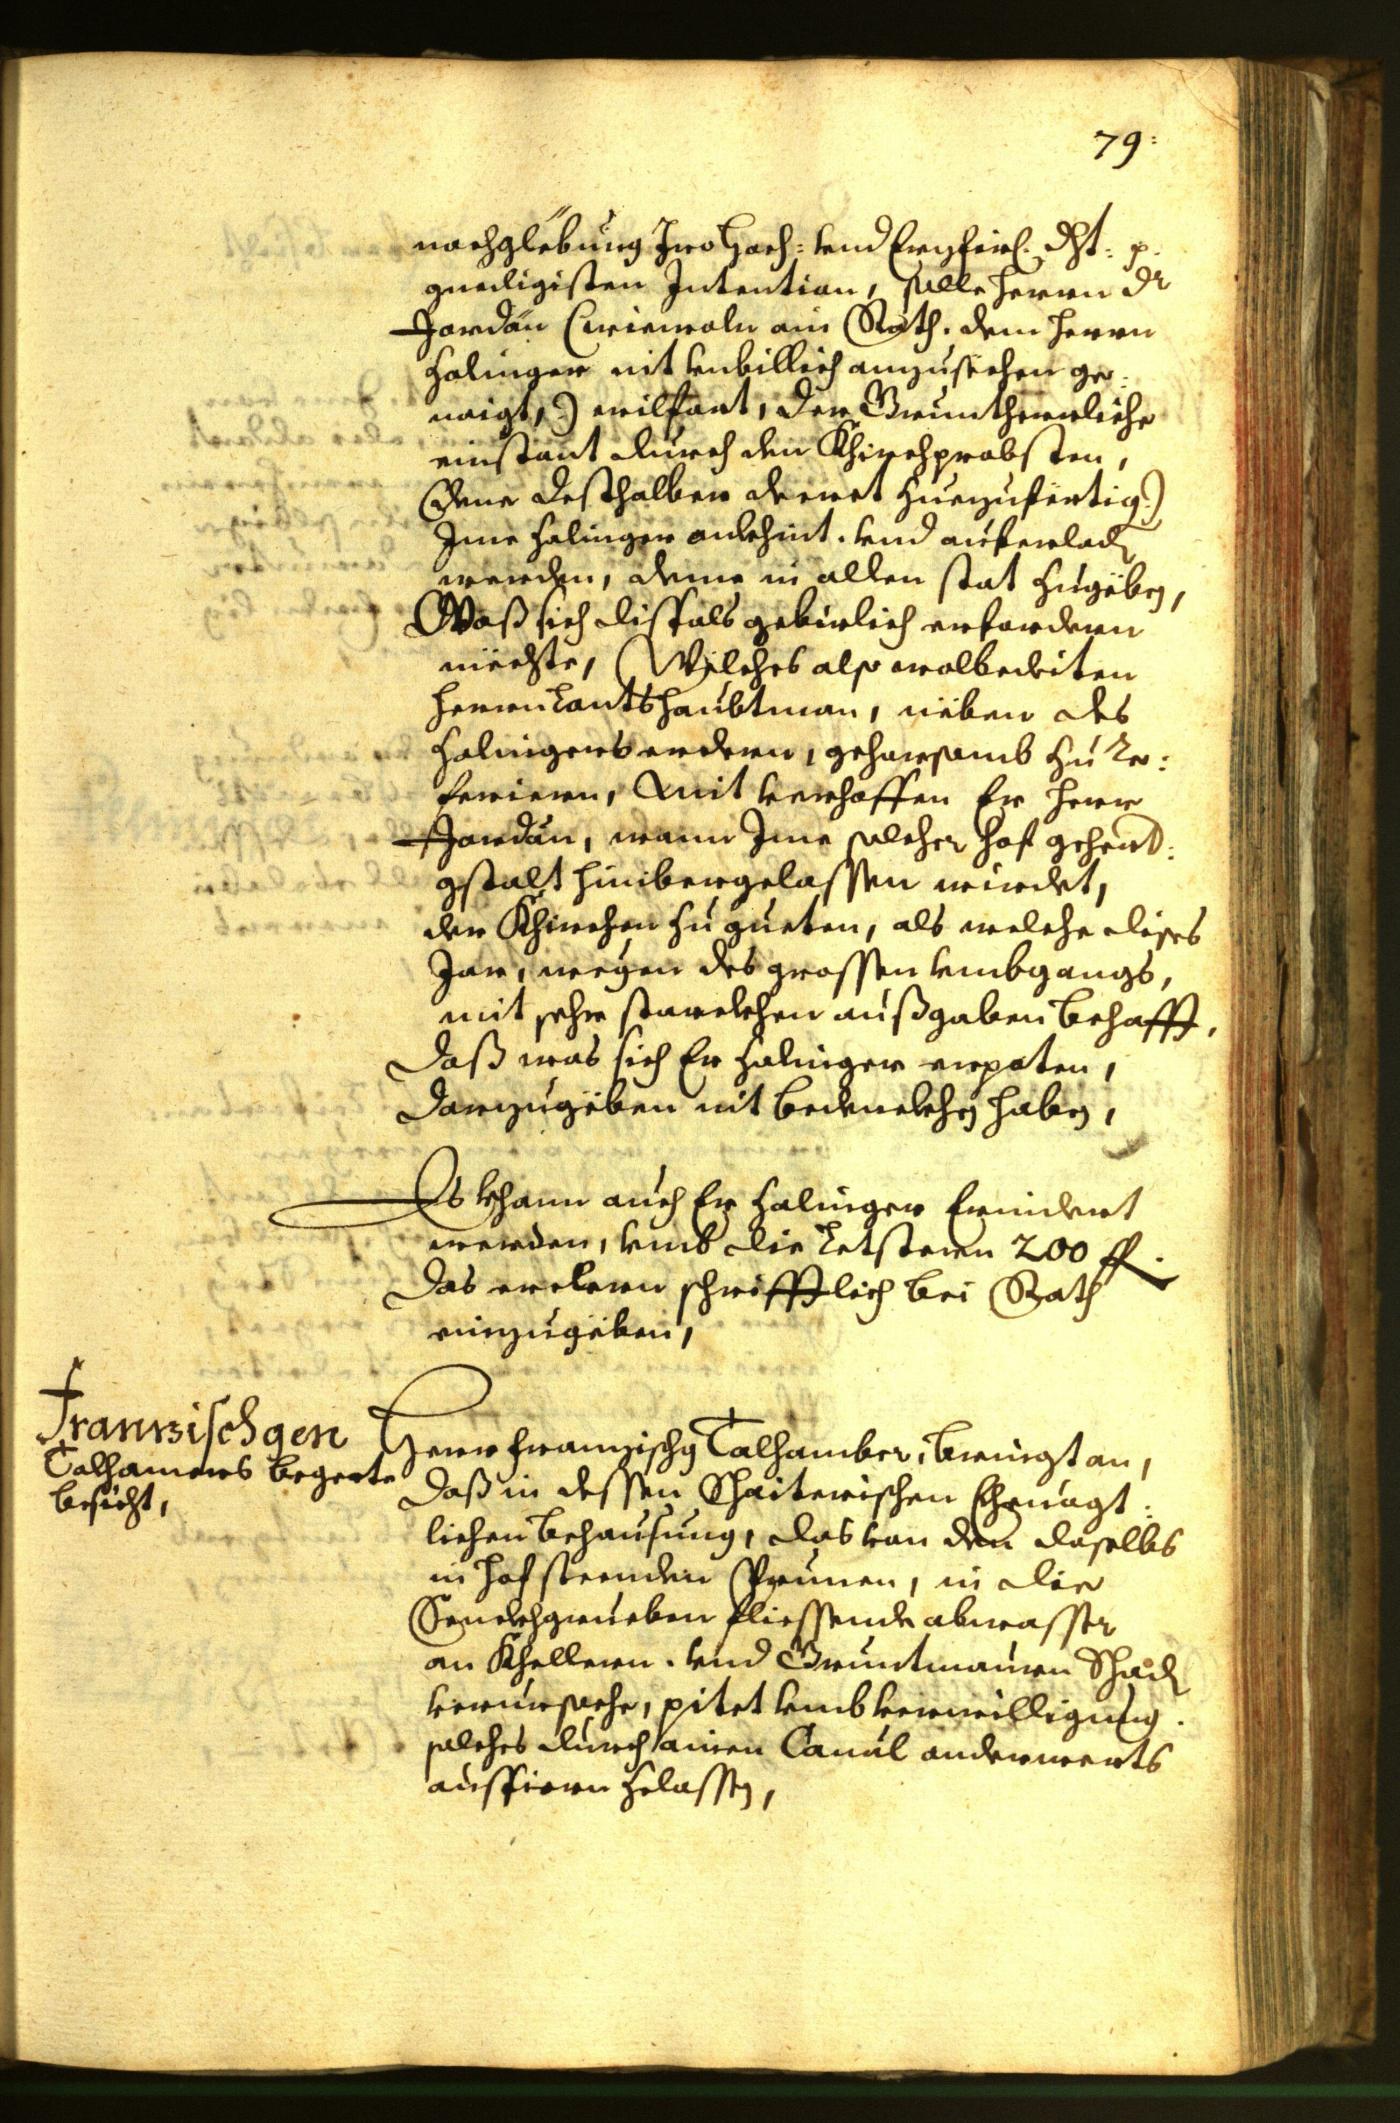 79:
nachglebung Iro Hoch: vnd Erzfürl. Dht: p.
gnedigisten Intention, solle herrn Dr
Jordan (wiewoln ain Rath. dem herrn
Halinger nit vnbillich anzusechen ge:
naigt,) wilfart, der Gruntherrliche
einstant durch den Khirchprobsten,
(deme desthalben decret zuezufertig:)
Ime Halinger ankhint. vnd auferladen
werden, deme in allen stat zugëben,
Waß sich dissfals gebirlich erfordern
mechte, Wëlches also wolbedeiten
herrn Lantshaubtman, nëben des
Halingers erdern, gehorsamb zu re:
ferieren, Mit verhoffen Er herr
Jordan, wann Ime solcher hof gehert:
gstalt hinibergelassen wirdet,
der Khirchen zu gueten, als welche dises
Jar, wegen des grossen vmbgangs,
mit sehr starckhen außgaben behafft,
Daß was sich Er Halinger erpoten,
darzugëben nit bedenckhen haben,
Es khann auch Er Halinger Erindert
werden, vmb die Letstern 200 fl.
das ercleren schrifftlich bei Rath
einzugëben,
Frannzischgen
Talhamers begerte
besicht,
Herr Frannzischg Talhamber, bringt an,
daß in dessen Schaiterischen Ehenagt:
lichen behausung, das von dem daselbs
in hof steenden Prunen, in die
Senckhgrueben fliessende abwasser
an Khellern. vnd Gruntmauren Schaden
verursache, pitet vmb verwilligung.
solches durch ainen Canal anderwerts
aussfiern zelassen,